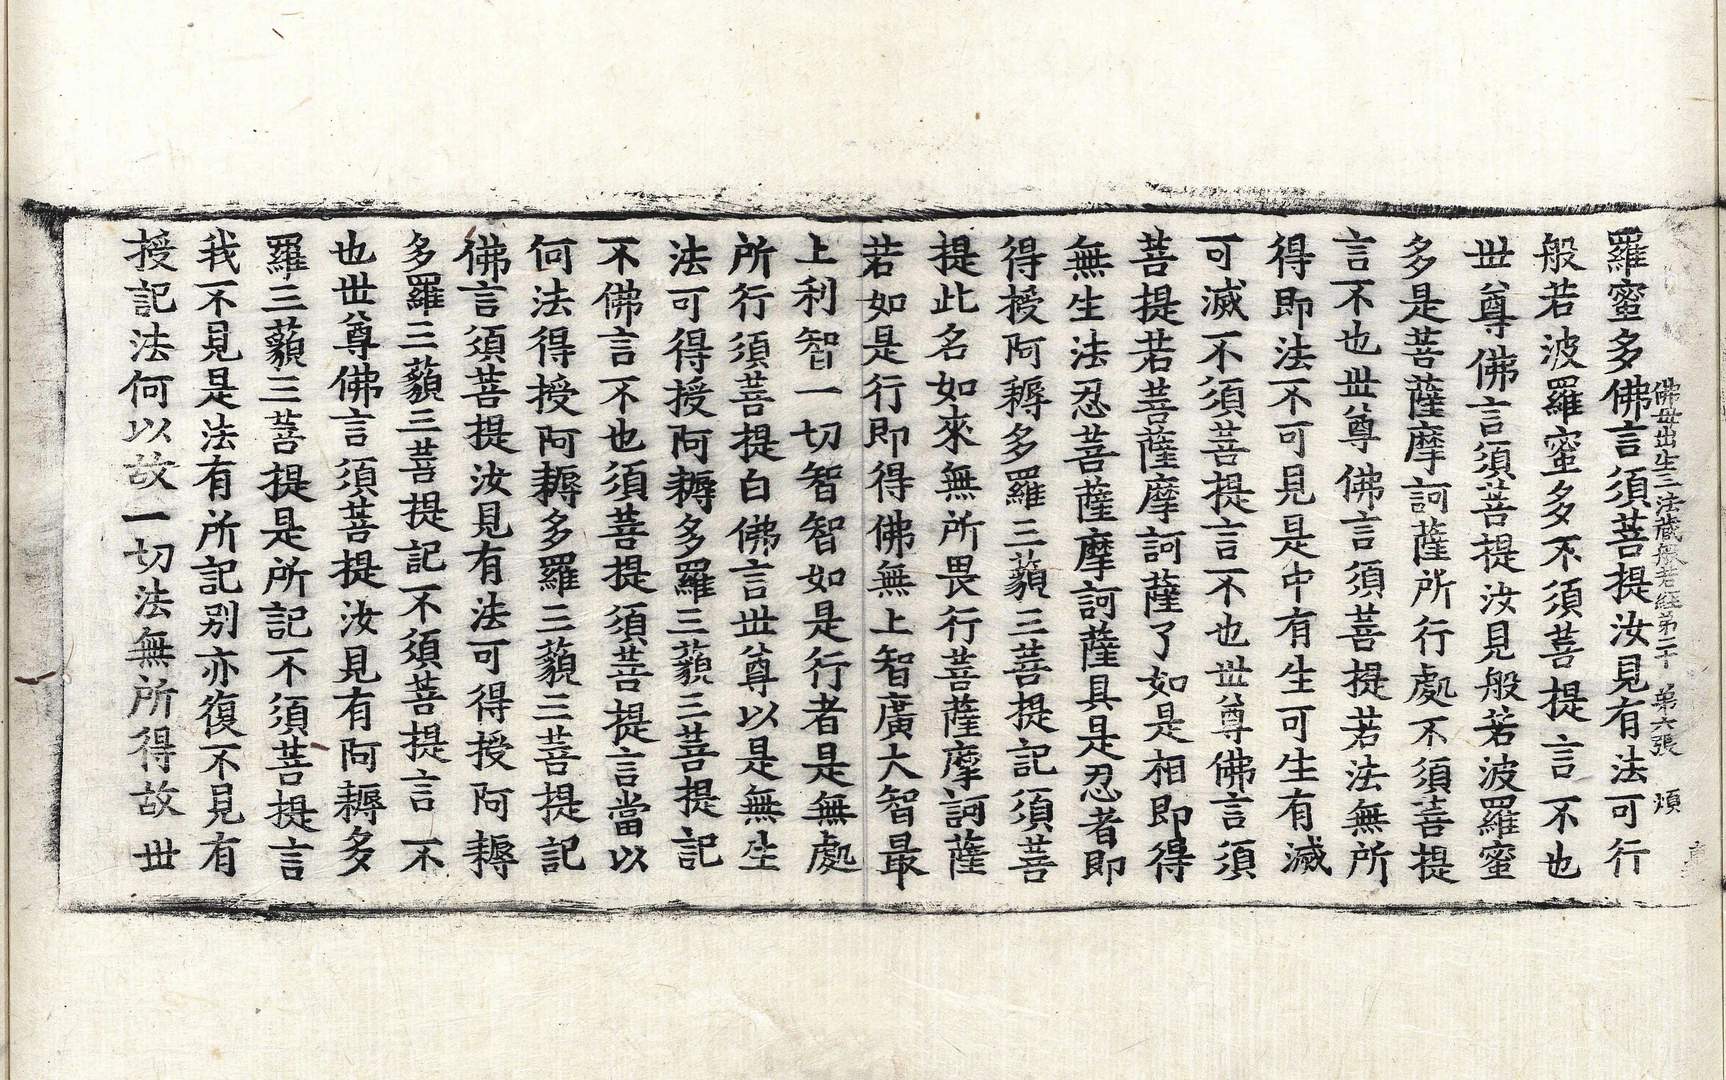 佛母出生三法藏般若經第二十 第六張 頃
羅蜜多佛言須菩提汝見有法可行
般若波羅蜜多不須菩提言不也
世尊佛言須菩提汝見般若波羅蜜
多是菩薩摩訶薩所行處不須菩提
言不也世尊佛言須菩提若法無所
得即法不可見是中有生可生有滅
可滅不須菩提言不也世尊佛言須
菩提若菩薩摩訶薩了如是相即得
無生法忍菩薩摩訶薩具是忍者即
得授阿耨多羅三藐三菩提記須菩
提此名如來無所畏行菩薩摩訶薩
若如是行即得佛無上智廣大智最
上利智一切智智如是行者是無處
所行須菩提白佛言世尊以是無生
法可得授阿耨多羅三藐三菩提記
不佛言不也須菩提須菩提言當以
何法得授阿耨多羅三藐三菩提記
佛言須菩提汝見有法可得授阿耨
多羅三藐三菩提記不須菩提言不
也世尊佛言須菩提汝見有阿耨多
羅三藐三菩提是所記不須菩提言
我不見是法有所記别亦復不見有
授記法何以故一切法無所得故世